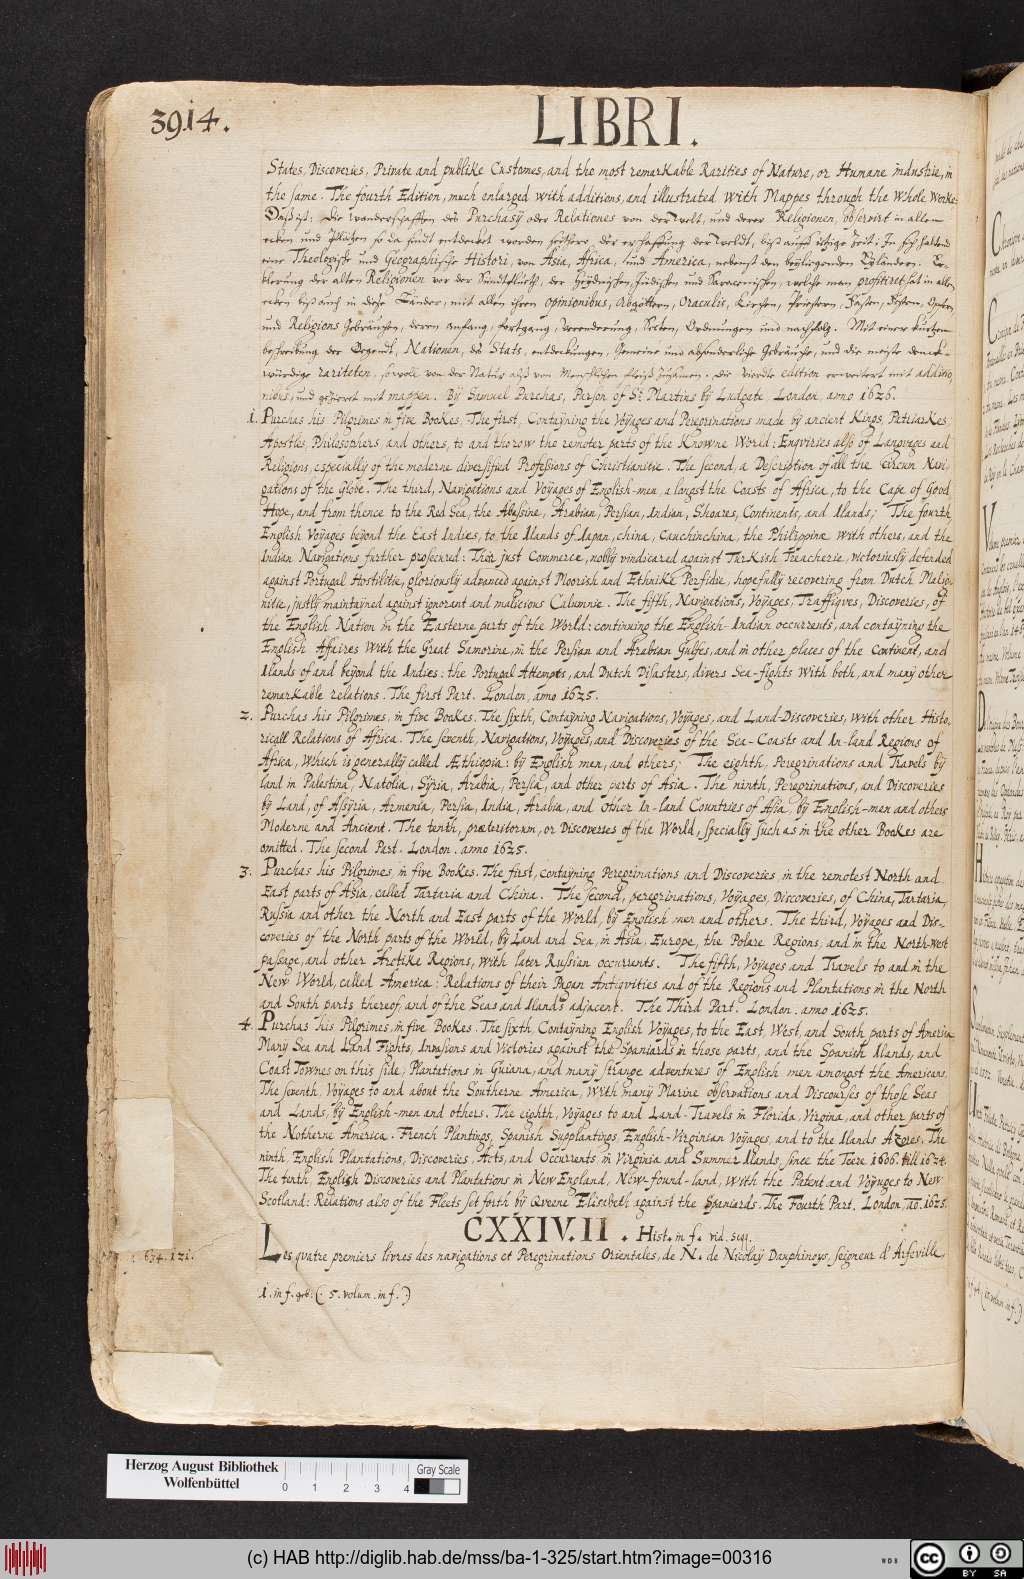 3914.
LIBRI.
States, Discoveries, Private and publike Customes, and the most remarkable Rarities of Nature, or Humane industrie, in
the same. The fourth Edition, much enlarged with additions, and illustrated with Mappes through the whole Worke.
Daß ist: Die wanderschafften des Purchasÿ oder Relationes von der welt, und derer Religionen, observirt in allen
ecken und Plätzen so da sindt entdecket worden seither der erschaffung der weldt, biß auff itzige zeit: In sich haltend
eine Theologische und Geographische Histori, von Asia, Africa, und America, nebenst den beÿliegenden Eÿländern. Er-
klerung der alten Religionen vor der Sündtflueth, der Heÿdnischen, Jüdischen und Saracenischen, welche man profitiret hat in allen
ecken biß auch in diese Länder, mit allen ihren opinionibus, Abgöttern, Oraculis, Kirchen, Priestern, Fasten, Festen, Opfern
und Religions Gebräuchen, deren Anfang, fortgang, Veranderung, Secten, Ordnungen und nachfolg. Mit einer kurtzen
beschreibung der Gegendt, Nationen, des Stats, entdeckungen, Gemeine und absonderliche Gebräuche, und die meiste denck-
würdige rariteten, sowoll von der Natur alß von Menschlichen fleiß zusamen. Die vierdte edition erweitert mit additio
nibus, und geziert mit mappen. By Samuel Purchas, Parson of St. Martins by Ludgate London, anno 1626.
1. Purchas his Pilgrimes in five Bookes. The first, Contayning the Voyages and Peregrinations made by ancient Kings, Patriarkes,
Apostles, Philosophers, and others, to and thorow the remoter parts of the Knowne World: Enqviries also of Languages and
Religions, especially of the moderne diversified Professions of Christianitie. The second, a Description of all the Circum Navi-
gations of the Globe. The third, Navigations and Voyages of English-men, a longst the Coasts of Africa, to the Cape of Good
Hope, and from thence to the Red Sea, the Abassine, Arabian, Persian, Indian, Schoares, Continents, and Ilands; The fourth,
English Voyages beyond the East Indies, to the Ilands of Iapan, china, Cauchinchina, the Philippinæ with others, and the
Indian Navigations further prosecuted: Their just Commerce, nobly vindicared against Turkish Treacherie, victoriously defended
against Portugal Hostilitie, gloriously advanced against Moorish and Ethnike Perfidie, hopefully recovering from Dutch Malig-
nitie, justly maintayned against ignorant and malicious Calumnie. The fifth, Navigations, Voyages, Traffiqves, Discoveries, of
the English Nation in the Easterne parts of the World: continuing the English-Indian occurrents, and contayning the
English Affaires with the Great Samorine, in the Persian and Arabian Gulfes, and in other places of the Continent, and
Ilands of and beyond the Indies: the Portugal Attempts, and Dutch Disasters, divers Sea-fights with both, and many other
remarkable relations. The first Part. London, anno 1625.
2. Purchas his Pilgrimes, in five Bookes. The sixth, Contayning Navigations, Voyages, and Land-Discoveries, with other Histo-
ricall Relations of Africa. The seventh, Navigations, Voyages, and Discoveries of the Sea-Coasts and In-land Regions of
Africa, which is generally called Æthiopia: by English men, and others; The eighth, Peregrinations and Travels by
land in Palestina, Natolia, Syria, Arabia, Persia, and other parts of Asia. The ninth, Peregrinations, and Discoveries
by Land, of Assyria, Armenia, Persia, India, Arabia, and other In-land Countries of Asia, by English-men and others
Moderne and Ancient. The tenth, præteritorum, or Discoveries of the World, specially such as in the other Bookes are
omitted. The second Part. London. anno 1625.
3. Purchas his Pilgrimes, in five Bookes. The first, contayning Peregrinations and Discoveries, in the remotest North and
East parts of Asia, called Tartaria and China. The second, peregrinations, Voyages, Discoveries, of China, Tartaria,
Russia and other the North and East parts of the World, by English-men and others. The third, Voyages and Dis-
coveries of the North parts of the World, by Land and Sea, in Asia, Europe, the Polare Regions, and in the North-west
passage, and other Arctike Regions, with later Russian occurrents. The fifth, Voyages and Travels to and in the
New World, called America: Relations of their Pagan Antiqvities and of the Regions and Plantations in the North
and South parts thereof, and of the Seas and Ilands adjacent. The Third Part. London. anno 1625.
4. Purchas his Pilgrimes, in five Bookes. The sixth, Contayning English Voyages, to the East, West, and South parts of America
Many Sea and Land Fights, Invasions and Victories against the Spaniards in those parts, and the Spanish Ilands, and
Coast Townes on this side, Plantations in Guiana, and many strange adventures of English men amongst the Americans.
The seventh, Voyages to and about the Southerne America, with many Marine observations and Discourses of those Seas
and Lands, by English-men and others. The eighth, Voyages to and Land-Travels in Florida, Virgina, and other parts of
the Notherne America. French Plantings, Spanish Supplantings, English-Virginian Voyages, and to the Ilands Azores. The
ninth, English Plantations, Discoveries, Acts, and Occurrents, in Virginia and Summer Ilands, since the Yeere 1606. till 1624.
The tenth, English Discoveries and Plantations in New England, New-found-land, with the Patent and Voyages to New
Scotland: Relations also of the Fleets set forth by Qveene Elisabeth against the Spaniards. The Fourth Part. London, ao. 1625.
CXXIV.II. Hist. in f. vid.
Les qvatre premiers livres des navigations et Peregrinations Orientales, de N. de Nicolaÿ Dauphinoys, seigneur d'Arfeville
634. 121.
1. in f. (: 5. volum. in f. :)
Herzog August Bibliothek
Wolfenbüttel
0 1 2 3 4
Gray Scale
(c) HAB http://diglib.hab.de/mss/ba-1-325/start.htm?image=00316
WDB
cc BY SA